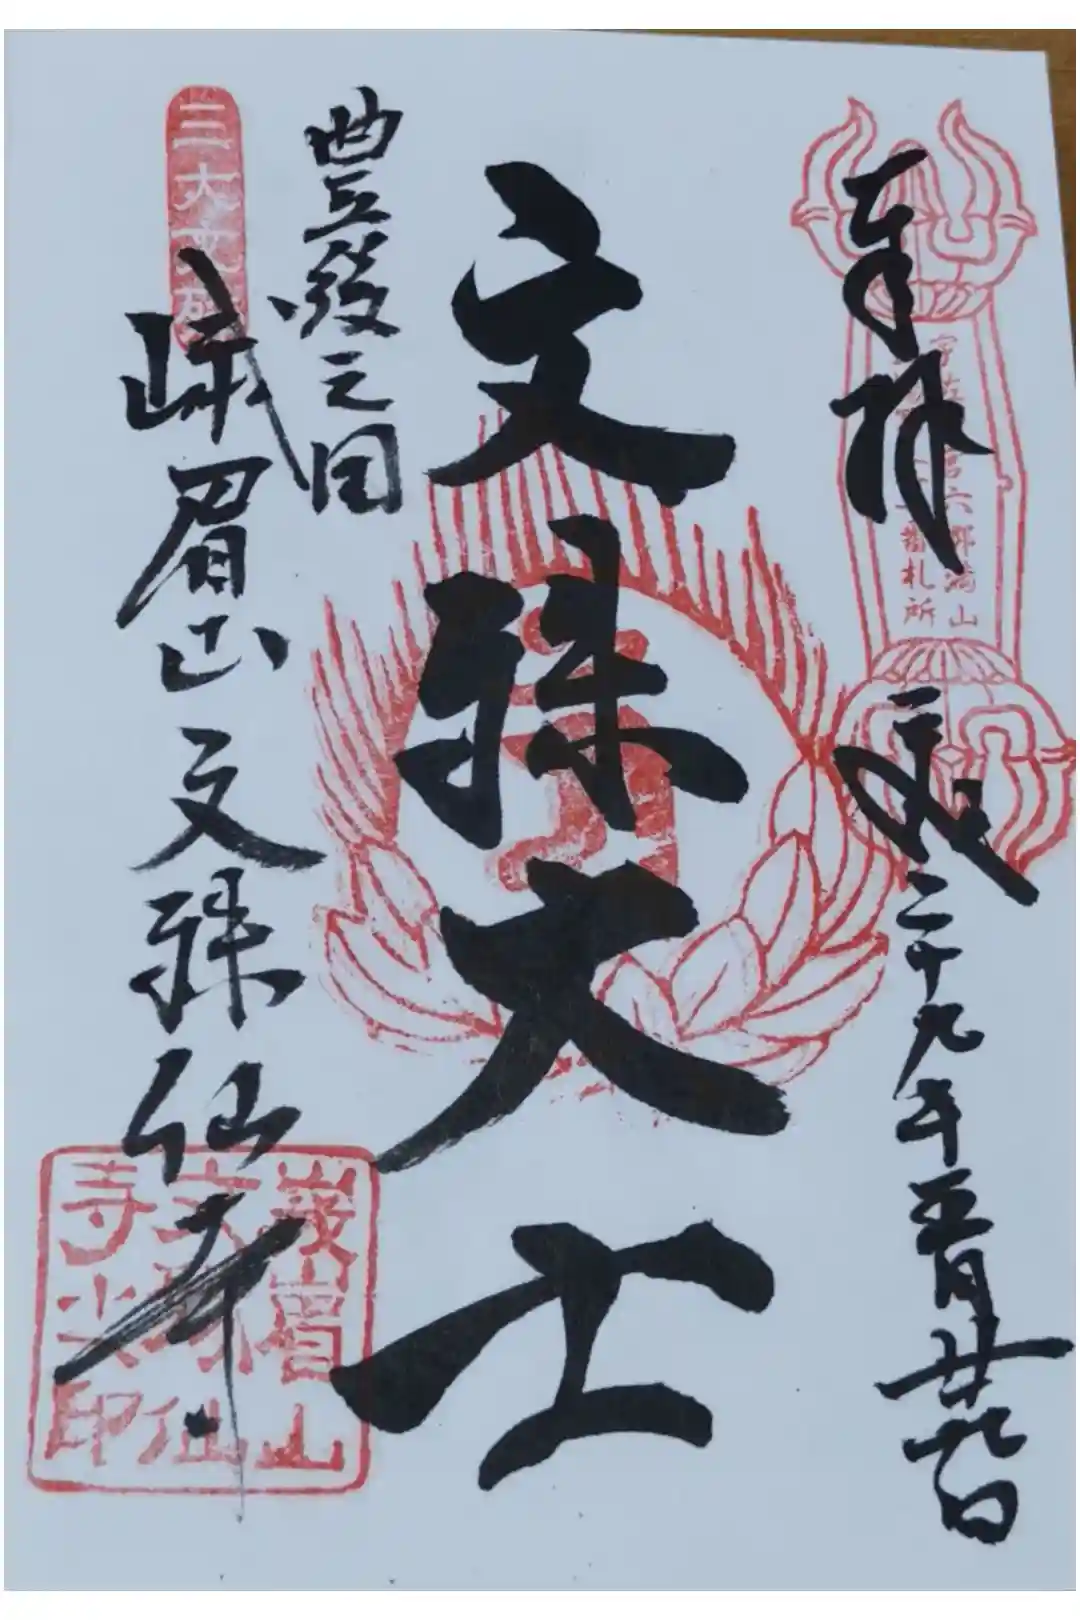 奉拝
平成二十九年五月廿九日
宇佐神宮六郷満山
番札所
文殊大士
豊後之国
三大文殊
峨眉山文殊仙寺
峩眉山
文殊仙
寺之印